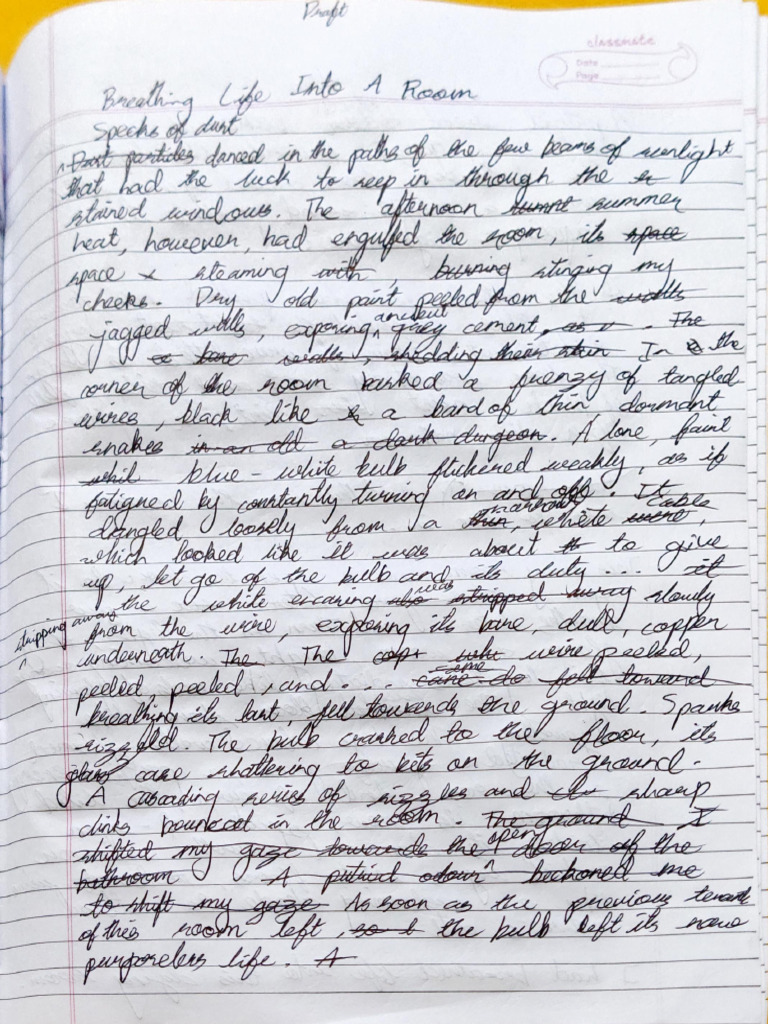 Draft
classmate
Date
Page
Breathing Life Into A Room
Specks of dust
Dust particles danced in the paths of the few beams of sunlight
that had the luck to seep in through the
stained windows. The afternoon summer
heat, however, had engulfed the room, its space
space steaming with, burning stinging my
cheeks. Dry old paint peeled from the walls
ancient
jagged walls, exposing grey cement, as. The
bare walls, shedding their skin In the
corner of the room basked a frenzy of tangled
wires, black like a band of thin dormant
snakes in an old a dark dungeon. A lone, faint
whit blue-white bulb flickered weakly, as if
fatigued by constantly turning on and off. It
narrow cable
dangled loosely from a thin, white wire,
which looked like it was about to give
up, let go of the bulb and its duty... it
was
the white encasing also stripped away slowly
stripping away
from the wire, exposing its bare, dull, copper
underneath. The The wire peeled,
came
peeled, peeled, and... came do fell toward
breathing its last, fell towards the ground. Sparks
sizzled. The bulb crashed to the floor, its
glass case shattering to bits on the ground.
A cascading series of sizzles and sharp
clinks bounced in the room. The ground I
open
shifted my gaze towards the door of the
bathroom A putrid odour beckoned me
to shift my gaze As soon as the previous tenant
of this room left, the bulb left its now
purposeless life. A